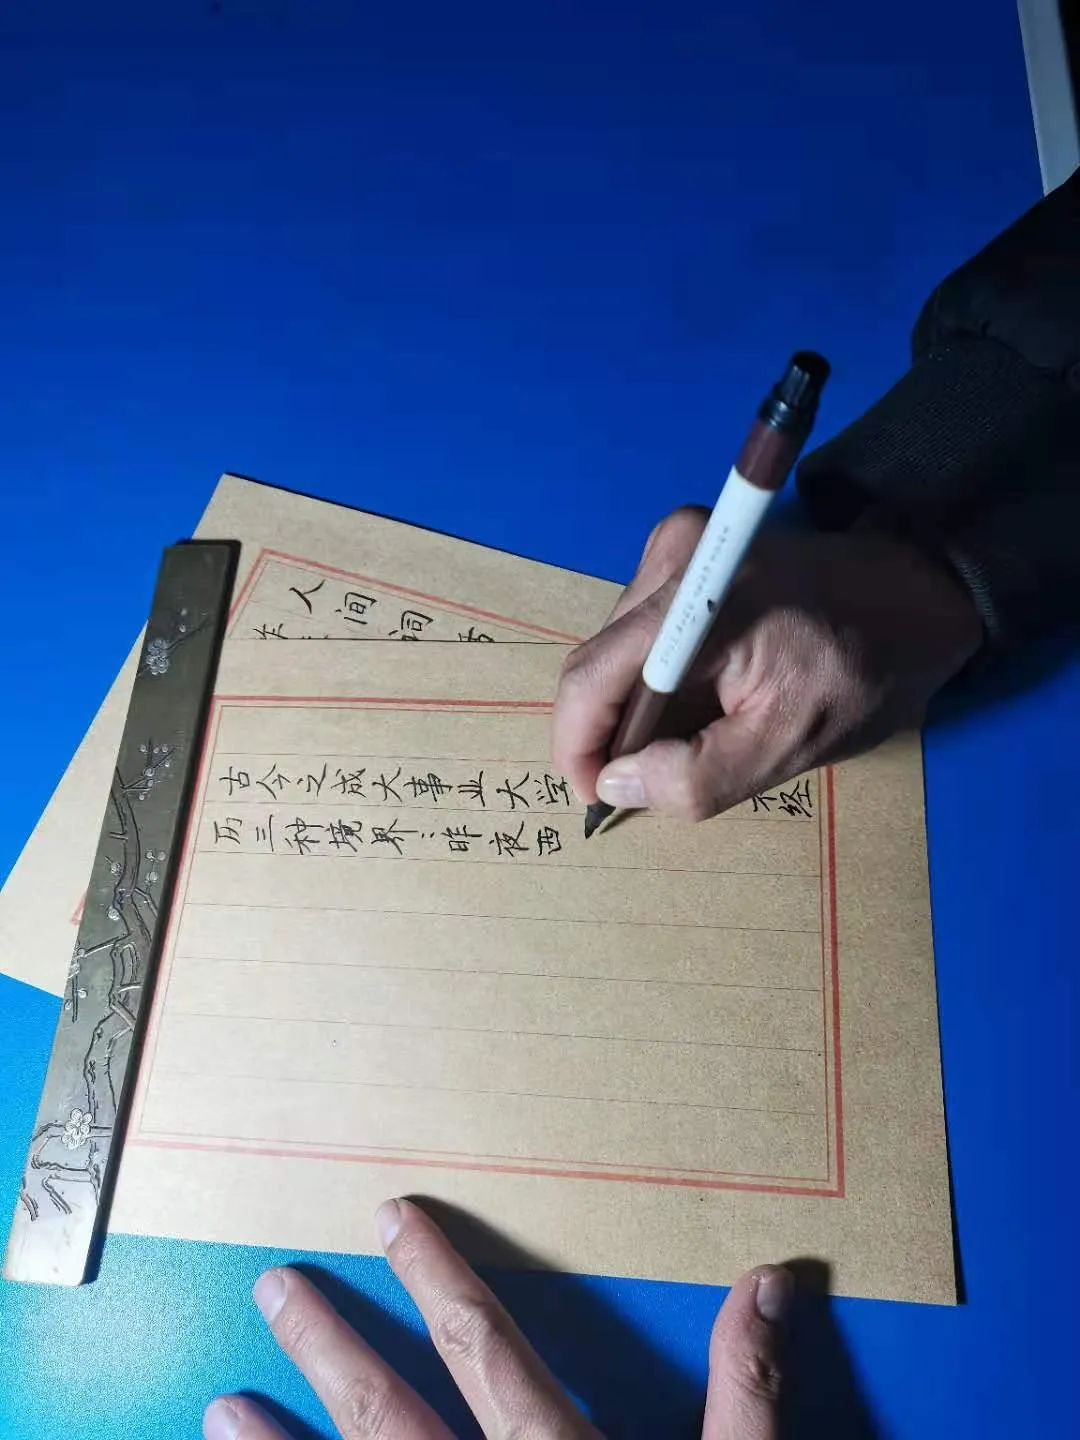 人间词
古今之成大事业大学
不经
历三种境界:昨夜西